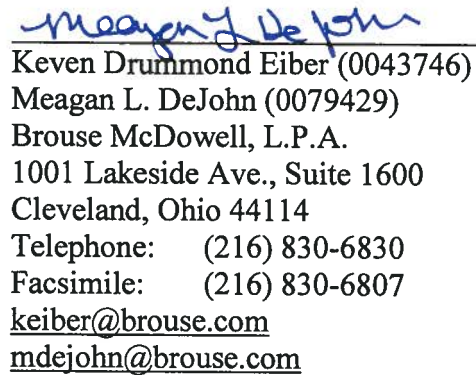 Meagan L DeJohn
Keven Drummond Eiber (0043746)
Meagan L. DeJohn (0079429)
Brouse McDowell, L.P.A.
1001 Lakeside Ave., Suite 1600
Cleveland, Ohio 44114
Telephone: (216) 830-6830
Facsimile: (216) 830-6807
keiber@brouse.com
mdejohn@brouse.com